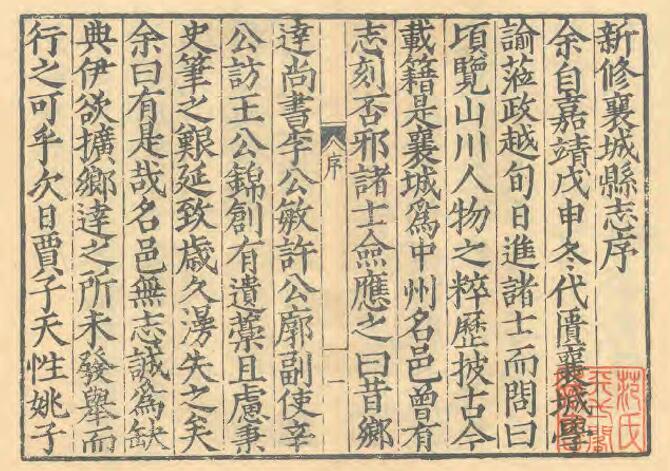 新修襄城縣志序
余自嘉靖戊申冬代匱襄城學
諭蒞政越旬日進諸士而問曰
頃覽山川人物之粹歷披古今
載籍是襄城為中州名邑曾有
志刻否邪諸士僉應之曰昔鄉
序
一
達尚書李公敏許公廓副使辛
公訪王公錦創有遺藳且慮秉
史筆之艱延致歳久湯失之矣
余曰有是哉名邑無志誠為缺
典伊欲擴鄉達之所未發舉而
行之可乎次日賈子天性姚子
范氏
天一閣